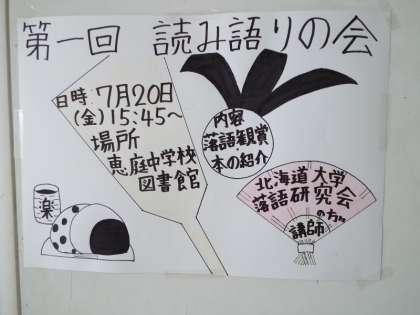 第一回 読み語りの会
日時:7月20日
(金)15:45〜
場所
恵庭中学校
図書館
内容
落語観賞
本の紹介
北海道大学
落語研究会
の方
講師
楽